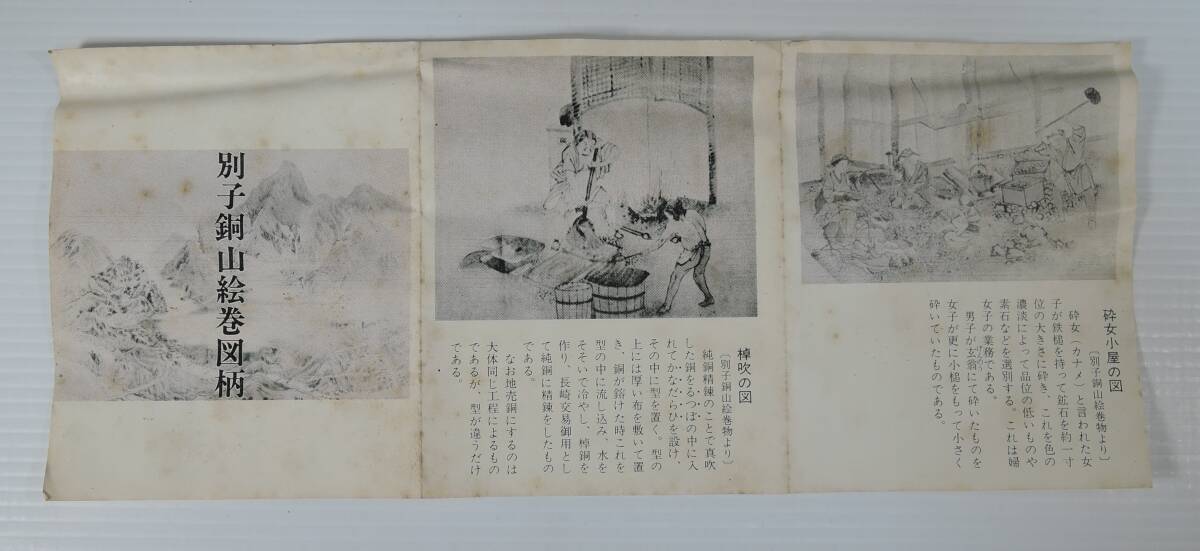 砕女小屋の図
〔別子銅山絵巻物より〕
砕女（カナメ）と言われた女
子が鉄槌を持って鉱石を約一寸
位の大きさに砕き、これを色の
濃淡によって品位の低いものや
素石などを選別する。これは婦
女子の業務である。
男子が玄翁にて砕いたものを
女子が更に小槌をもって小さく
砕いていたものである。
棹吹の図
〔別子銅山絵巻物より〕
純銅精錬のことで真吹
した銅をるつぼの中に入
れてかなだらひを設け、
その中に型を置く。型の
上には厚い布を敷いて置
き、銅が鎔けた時これを
型の中に流し込み、水を
そそいで冷やし、棹銅を
作り、長崎交易御用とし
て純銅に精錬をしたもの
である。
なお地売銅にするのは
大体同じ工程によるもの
であるが、型が違うだけ
である。
別子銅山絵巻図柄